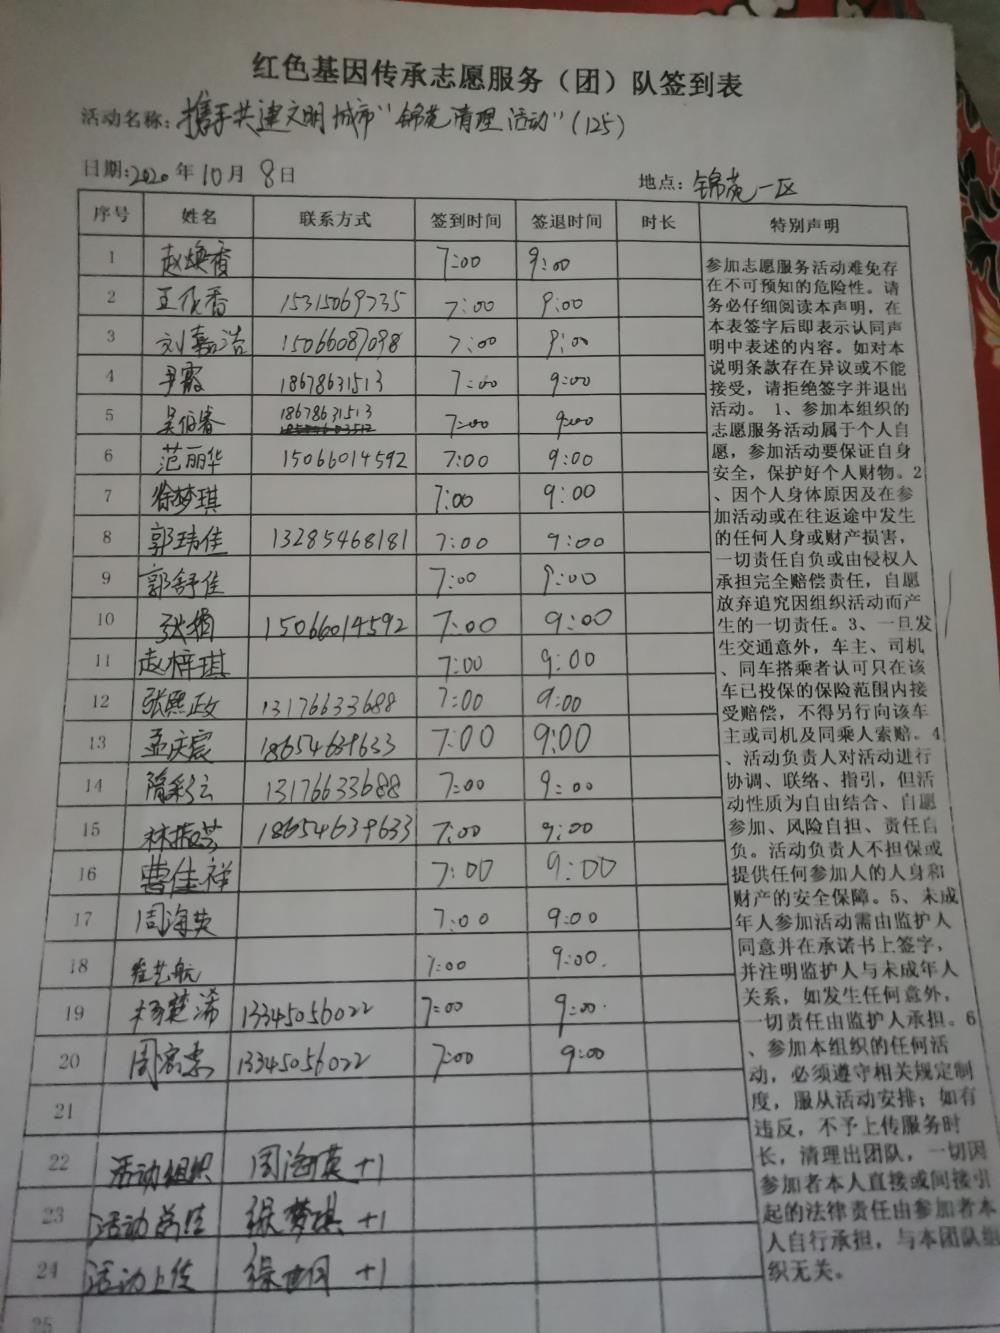 红色基因传承志愿服务（团）队签到表
活动名称：携手共建文明城市"锦苑清理活动"（125）
日期：2020年10月8日 地点：锦苑一区
序号 姓名 联系方式 签到时间 签退时间 时长 特别声明
1 赵焕香 7:00 9:00
2 王 香 15315069735 7:00 9:00
3 刘嘉浩 15066087098 7:00 9:00
4 尹霞 18678631513 7:00 9:00
5 吴伯睿 18678631513 7:00 9:00
6 范丽华 15066014592 7:00 9:00
7 徐梦琪 7:00 9:00
8 郭玮佳 13285468181 7:00 9:00
9 郭舒佳 7:00 9:00
10 张楠 15066014592 7:00 9:00
11 赵梓琪 7:00 9:00
12 张熙政 13176633688 7:00 9:00
13 孟庆宸 18654639633 7:00 9:00
14 隋彩云 13176633688 7:00 9:00
15 林振芸 18654639633 7:00 9:00
16 曹佳祥 7:00 9:00
17 周海英 7:00 9:00
18 崔艺航 7:00 9:00.
19 杨楚浠 13345056022 7:00 9:00
20 周 13345056022 7:00 9:00
21
22 活动组织 周海英 +1
23 活动总结 徐梦琪 +1
24 活动上传 徐 +1
25
参加志愿服务活动难免存
在不可预知的危险性。请
务必仔细阅读本声明，在
本表签字后即表示认同声
明中表述的内容。如对本
说明条款存在异议或不能
接受，请拒绝签字并退出
活动。1、参加本组织的
志愿服务活动属于个人自
愿，参加活动要保证自身
安全，保护好个人财物。2
、因个人身体原因及在参
加活动或在往返途中发生
的任何人身或财产损害，
一切责任自负或由侵权人
承担完全赔偿责任，自愿
放弃追究因组织活动而产
生的一切责任。3、一旦发
生交通意外，车主、司机
、同车搭乘者认可只在该
车已投保的保险范围内接
受赔偿，不得另行向该车
主或司机及同乘人索赔。4
、活动负责人对活动进行
协调、联络、指引，但活
动性质为自由结合、自愿
参加、风险自担、责任自
负。活动负责人不担保或
提供任何参加人的人身和
财产的安全保障。5、未成
年人参加活动需由监护人
同意并在承诺书上签字，
并注明监护人与未成年人
关系，如发生任何意外，
一切责任由监护人承担。6
、参加本组织的任何活
动，必须遵守相关规定制
度，服从活动安排；如有
违反，不予上传服务时
长，清理出团队，一切因
参加者本人直接或间接引
起的法律责任由参加者本
人自行承担，与本团队组
织无关。